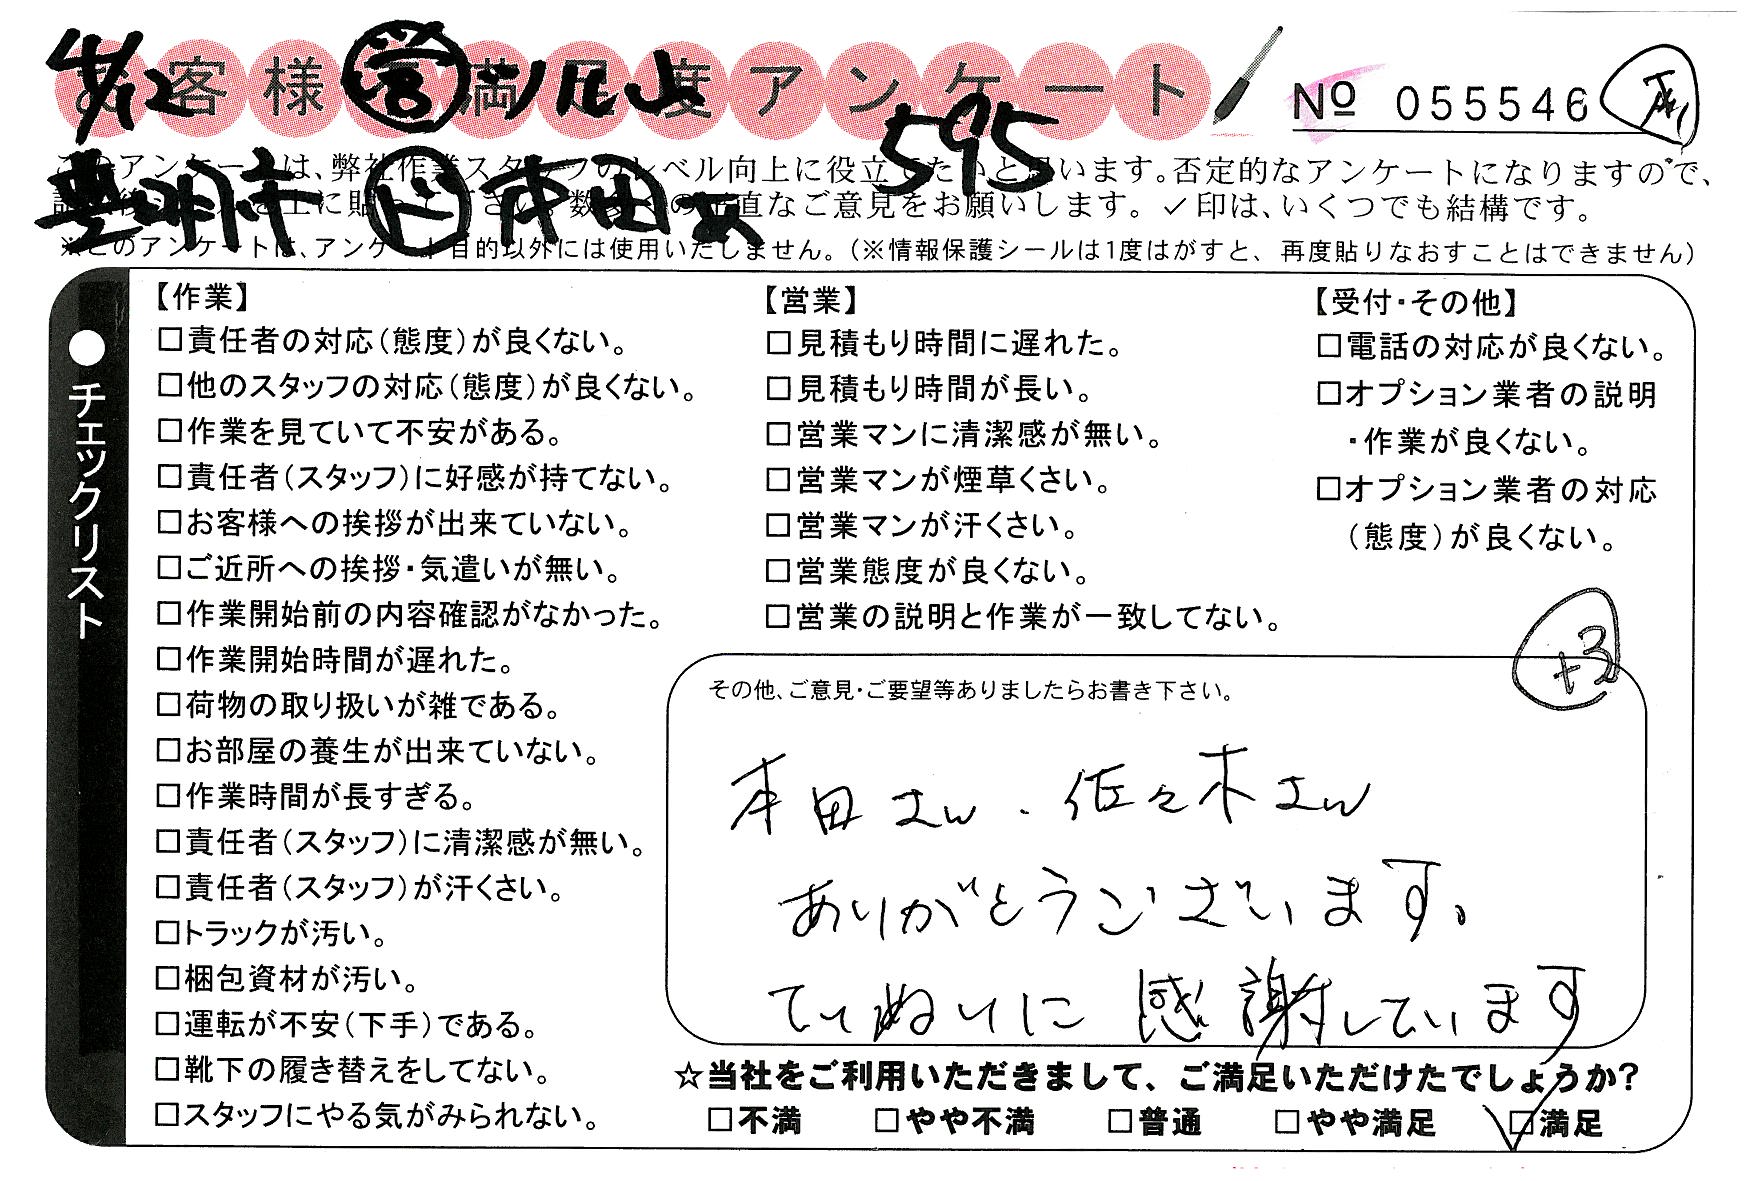 お客様満足度アンケート
4/12 営 ソルエ
595
№ 055546
豊明市 ド 本田
このアンケートは、弊社作業スタッフのレベル向上に役立てたいと思います。否定的なアンケートになりますので、
に貼って下さい。数 の正直なご意見をお願いします。✓印は、いくつでも結構です。
※このアンケートは、アンケート目的以外には使用いたしません。（※情報保護シールは1度はがすと、再度貼りなおすことはできません）
●チェックリスト
【作業】
□責任者の対応（態度）が良くない。
□他のスタッフの対応（態度）が良くない。
□作業を見ていて不安がある。
□責任者（スタッフ）に好感が持てない。
□お客様への挨拶が出来ていない。
□ご近所への挨拶・気遣いが無い。
□作業開始前の内容確認がなかった。
□作業開始時間が遅れた。
□荷物の取り扱いが雑である。
□お部屋の養生が出来ていない。
□作業時間が長すぎる。
□責任者（スタッフ）に清潔感が無い。
□責任者（スタッフ）が汗くさい。
□トラックが汚い。
□梱包資材が汚い。
□運転が不安（下手）である。
□靴下の履き替えをしてない。
□スタッフにやる気がみられない。
【営業】
□見積もり時間に遅れた。
□見積もり時間が長い。
□営業マンに清潔感が無い。
□営業マンが煙草くさい。
□営業マンが汗くさい。
□営業態度が良くない。
□営業の説明と作業が一致してない。
【受付・その他】
□電話の対応が良くない。
□オプション業者の説明
・作業が良くない。
□オプション業者の対応
（態度）が良くない。
+3
その他、ご意見・ご要望等ありましたらお書き下さい。
本田さん・佐々木さん
ありがとうございます。
ていねいに 感謝しています
☆当社をご利用いただきまして、ご満足いただけたでしょうか？
□不満 □やや不満 □普通 □やや満足 ☑満足